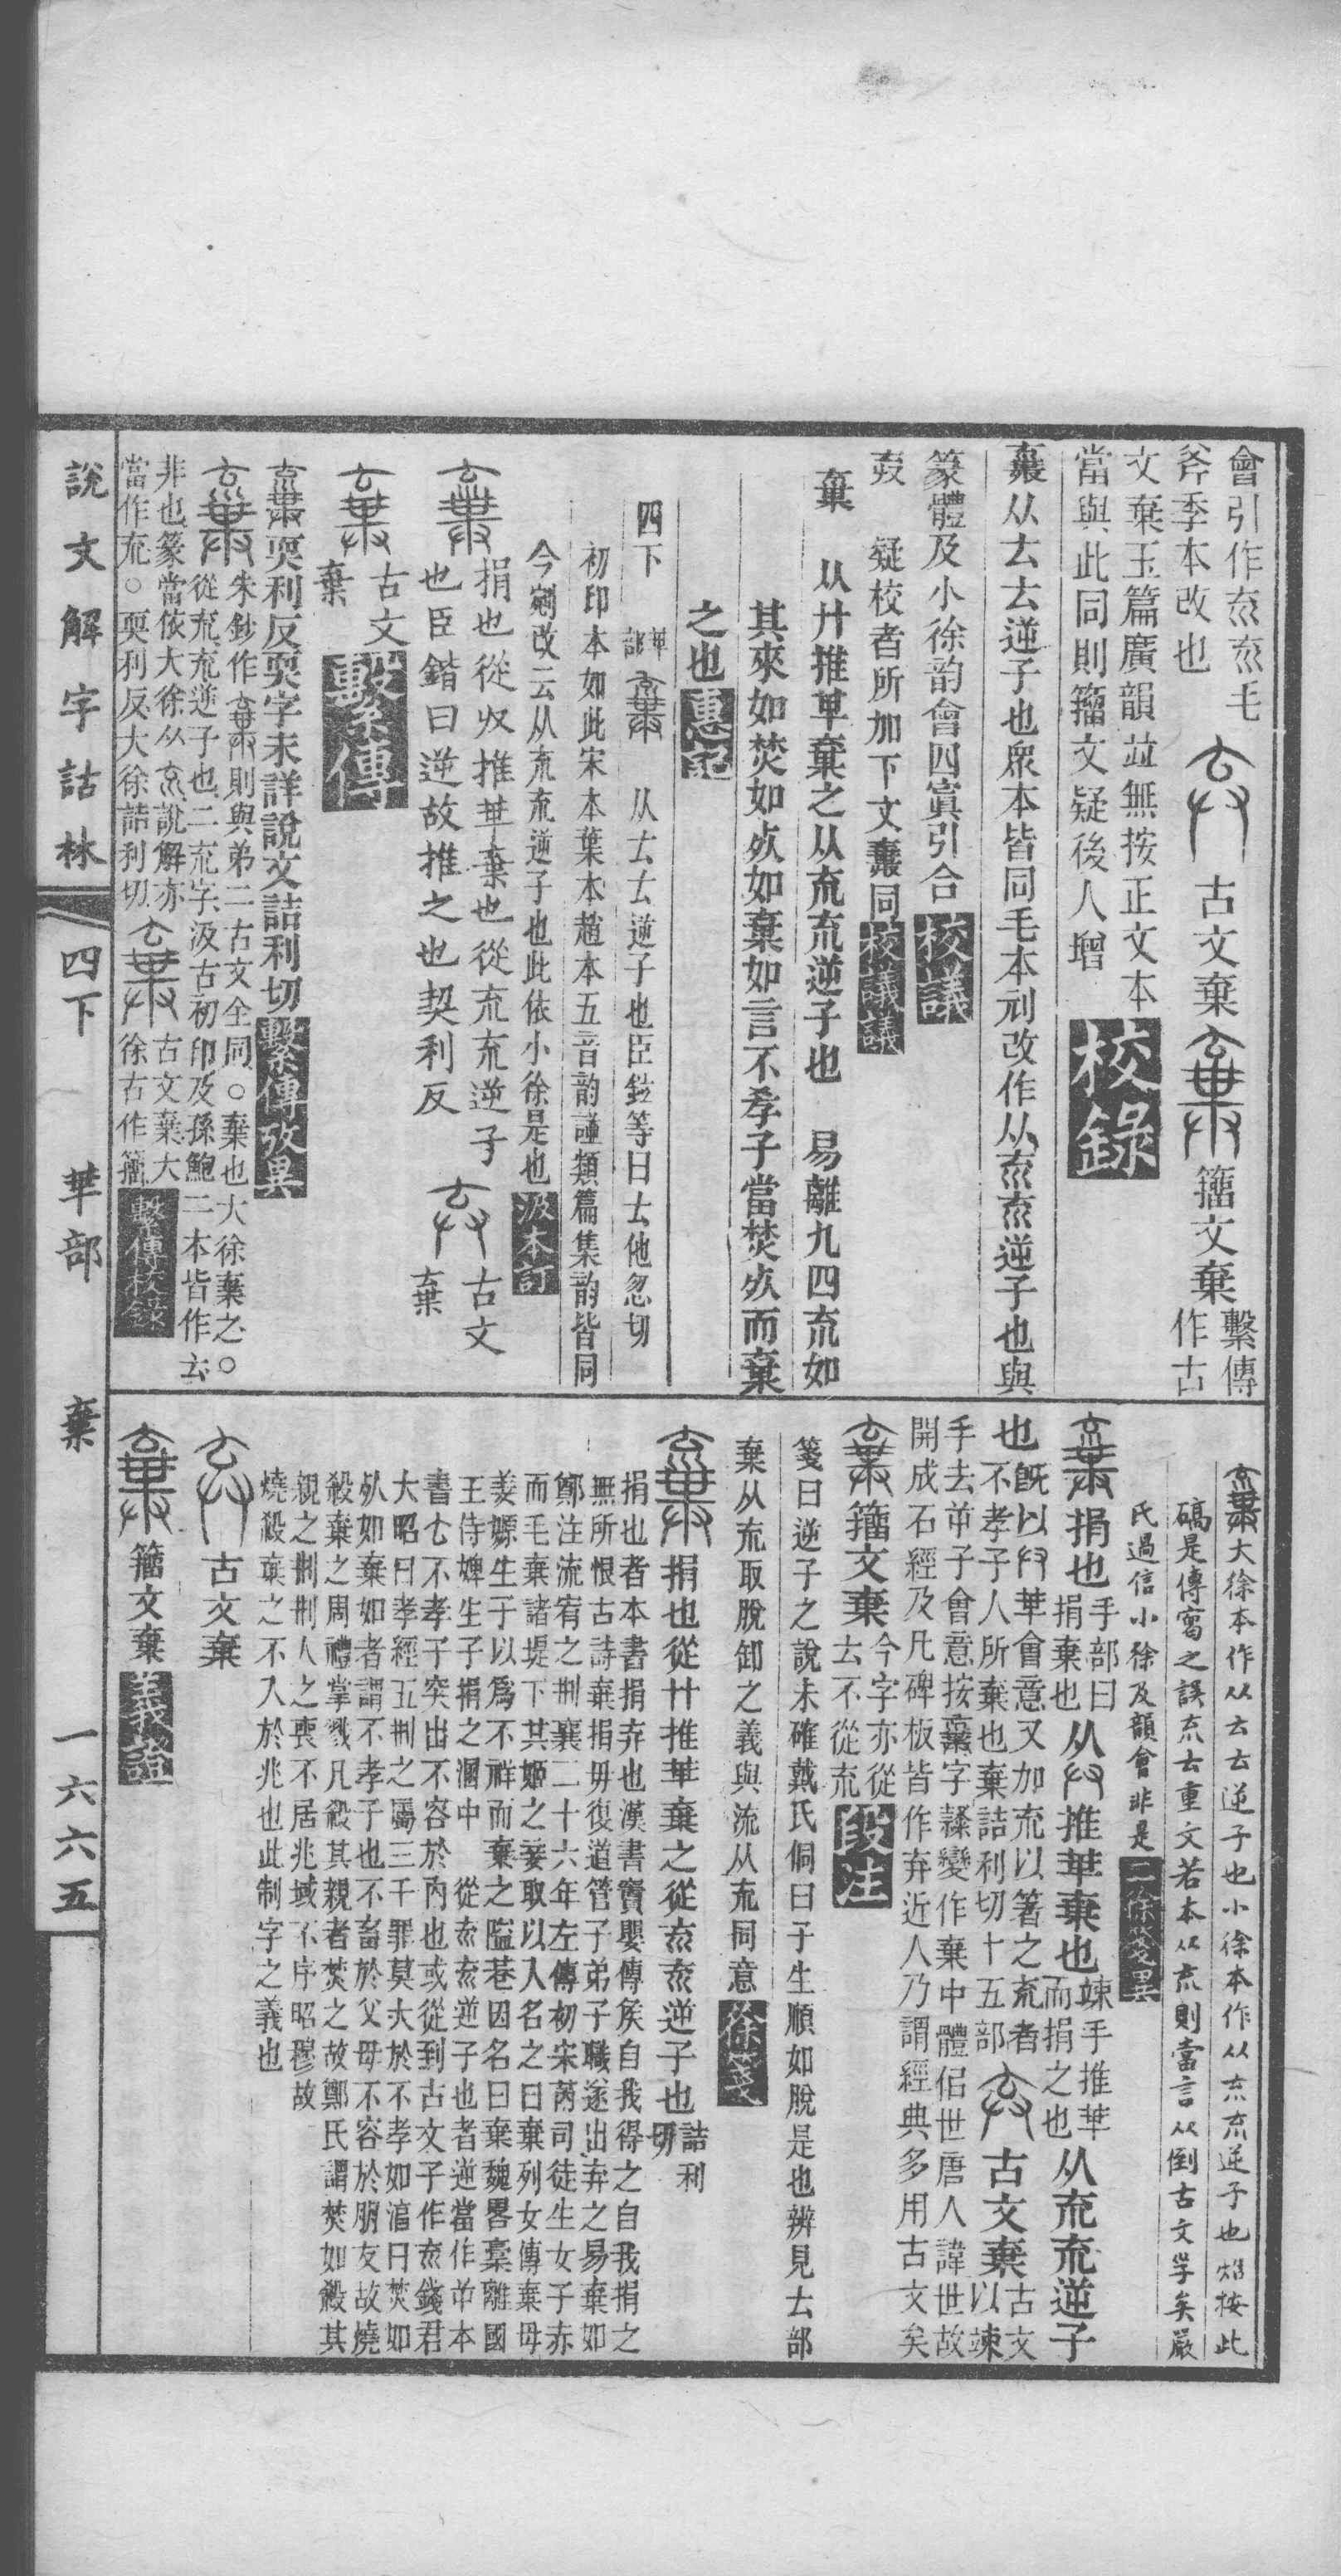 會引作㐬㐬毛
斧季本改也
古文棄
籀文棄
繫傳
作古
文棄玉篇廣韻並無按正文本
當與此同則籀文疑後人增
校錄
棄从𠫓𠫓逆子也衆本皆同毛本刓改作从㐬㐬逆子也與
篆體及小徐韵會四寘引合
校議
疑校者所加下文棄同
校議議
棄 从廾推𠦒棄之从㐬㐬逆子也 易離九四㐬如
其來如焚如𣦸如棄如言不孝子當焚𣦸而棄
之也
惠記
四下
𠦒部
从𠫓𠫓逆子也臣鉉等曰𠫓他忽切
初印本如此宋本葉本趙本五音韵譜類篇集韵皆同
今剜改云从㐬㐬逆子也此依小徐是也
汲本訂
捐也從廾推𠦒棄也從㐬㐬逆子
也臣鍇曰逆故推之也契利反
古文
棄
古文
棄
繫傳
耎利反耎字未詳說文詰利切
繫傳攷異
朱鈔作棄則與弟二古文全同○棄也大徐棄之○
從㐬㐬逆子也二㐬字汲古初印及孫鮑二本皆作𠫓
非也篆當依大徐从㐬說解亦
當作㐬○耎利反大徐詰利切
古文棄大
徐古作籀
繫傳校錄
說文解字詁林
四下
𠦒部
棄
一六六五
棄大徐本作从𠫓𠫓逆子也小徐本作从㐬㐬逆子也炤按此
碻是傳寫之誤㐬𠫓重文若本从㐬則當言从倒古文孚矣嚴
氏過信小徐及韻會非是
二徐箋異
捐也
手部曰
捐棄也
从廾推𠦒棄也
竦手推𠦒
而捐之也
从㐬㐬逆子
也
旣以廾𠦒會意又加㐬以箸之㐬者
不孝子人所棄也棄詰利切十五部
古文棄
古文
以竦
手去𠫓子會意按棄字隸變作棄中體侣世唐人諱世故
開成石經及凡碑板皆作弃近人乃謂經典多用古文矣
籀文棄
今字亦從
𠫓不從㐬
段注
箋曰逆子之說未確戴氏侗曰子生順如脫是也辨見𠫓部
棄从㐬取脫卸之義與流从㐬同意
徐箋
捐也從廾推𠦒棄之從㐬㐬逆子也
詰利
切
捐也者本書捐弃也漢書竇嬰傳侯自我得之自我捐之
無所恨古詩棄捐毋復道管子弟子職遂出弃之易棄如
鄭注流宥之刑襄二十六年左傳初宋芮司徒生女子赤
而毛棄諸堤下其姬之妾取以入名之曰棄列女傳棄母
姜嫄生子以爲不祥而棄之隘巷因名曰棄魏畧槀離國
王侍婢生子捐之溷中 從㐬㐬逆子也者逆當作𠫓本
書𠫓不孝子突出不容於內也或從到古文子作㐬錢君
大昭曰孝經五刑之屬三千罪莫大於不孝如湻曰焚如
𣦸如棄如者謂不孝子也不畜於父母不容於朋友故燒
殺棄之周禮掌戮凡殺其親者焚之故鄭氏謂焚如殺其
親之刑刑人之喪不居兆域不序昭穆故
燒殺棄之不入於兆也此制字之義也
古文棄
籀文棄
義證